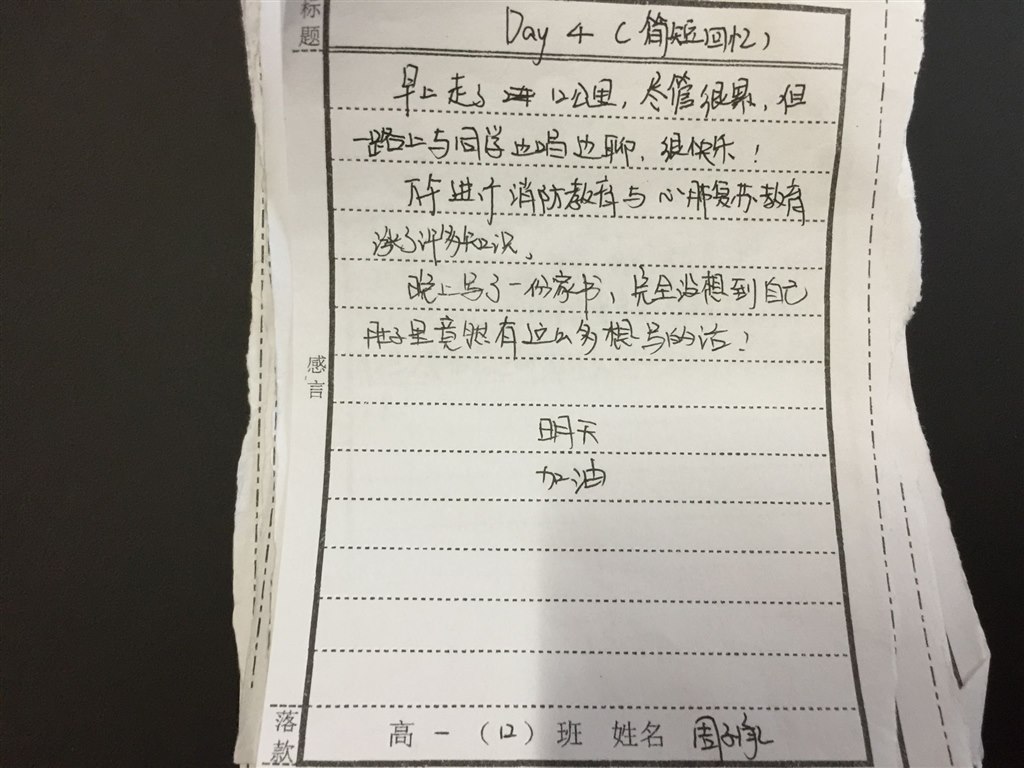 标题
Day 4（简短回忆）
早上走了12公里，尽管很累，但
一路上与同学边唱边聊，很快乐！
下午进行消防教育与心肺复苏教育
涨了许多知识。
晚上写了一份家书，完全没想到自己
肚子里竟然有这么多想写的话！
感言
明天
加油
落款
高一（12）班 姓名 周子